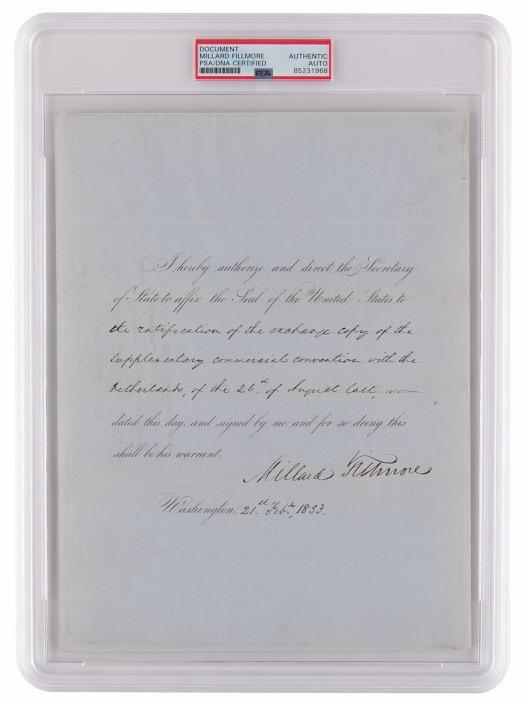 DOCUMENT
MILLARD FILLMORE AUTHENTIC
PSA/DNA CERTIFIED AUTO
PSA 85231968
I hereby authorize and direct the Secretary
of State to affix the Seal of the United States to
the ratification of the exchange copy of the
supplementary commercial convention with the
Netherlands, of the 26th of August last,
dated this day, and signed by me and for so doing this
shall be his warrant.
Millard Fillmore
Washington, 21st Feb., 1853.